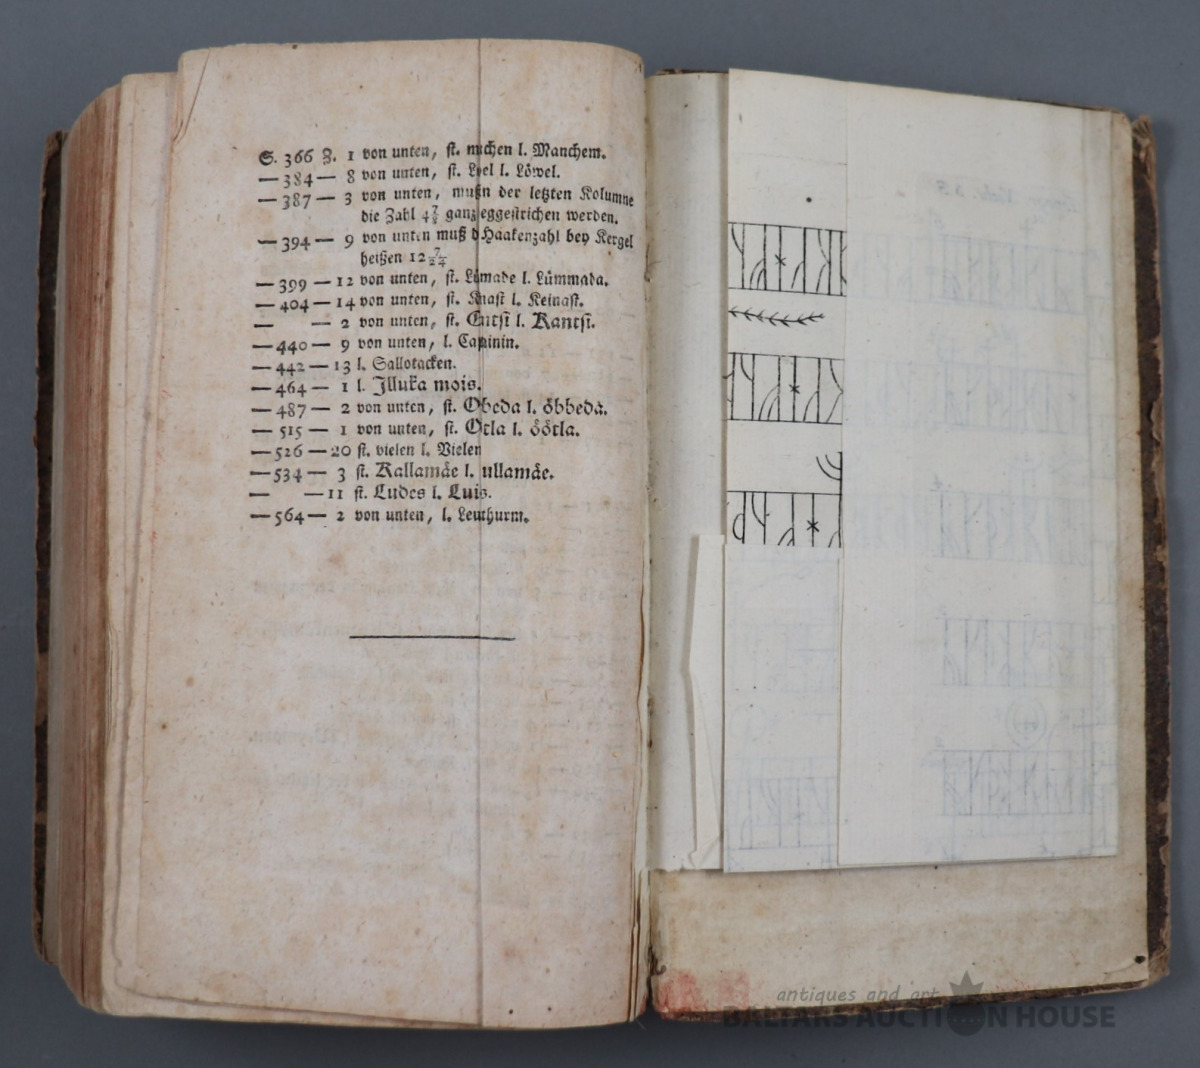 S. 366 Z. 1 von unten, st. machen l. Manchem.
— 384 — 8 von unten, st. l. Löwel.
— 387 — 3 von unten, muß in der letzten Kolumne
die Zahl 4⅞ ganz weggestrichen werden.
— 394 — 9 von unten muß d Haakenzahl bey Kergel
heißen 12 7/24
— 399 — 12 von unten, st. l. Lümmada.
— 404 — 14 von unten, st. l. Keinast.
— — 2 von unten, st. l. Kantsi.
— 440 — 9 von unten, l. Capinin.
— 442 — 13 l. Sallotacken.
— 464 — 1 l. Illuka mois.
— 487 — 2 von unten, st. Obeda l. öbbeda.
— 515 — 1 von unten, st. Otla l. öötla.
— 526 — 20 st. vielen l. Vielen
— 534 — 3 st. Kallamäe l. ullamäe.
— — 11 st. Ludes l. Luis.
— 564 — 2 von unten, l. Leuthurm.
antiques and art
BALTARS AUCTION HOUSE